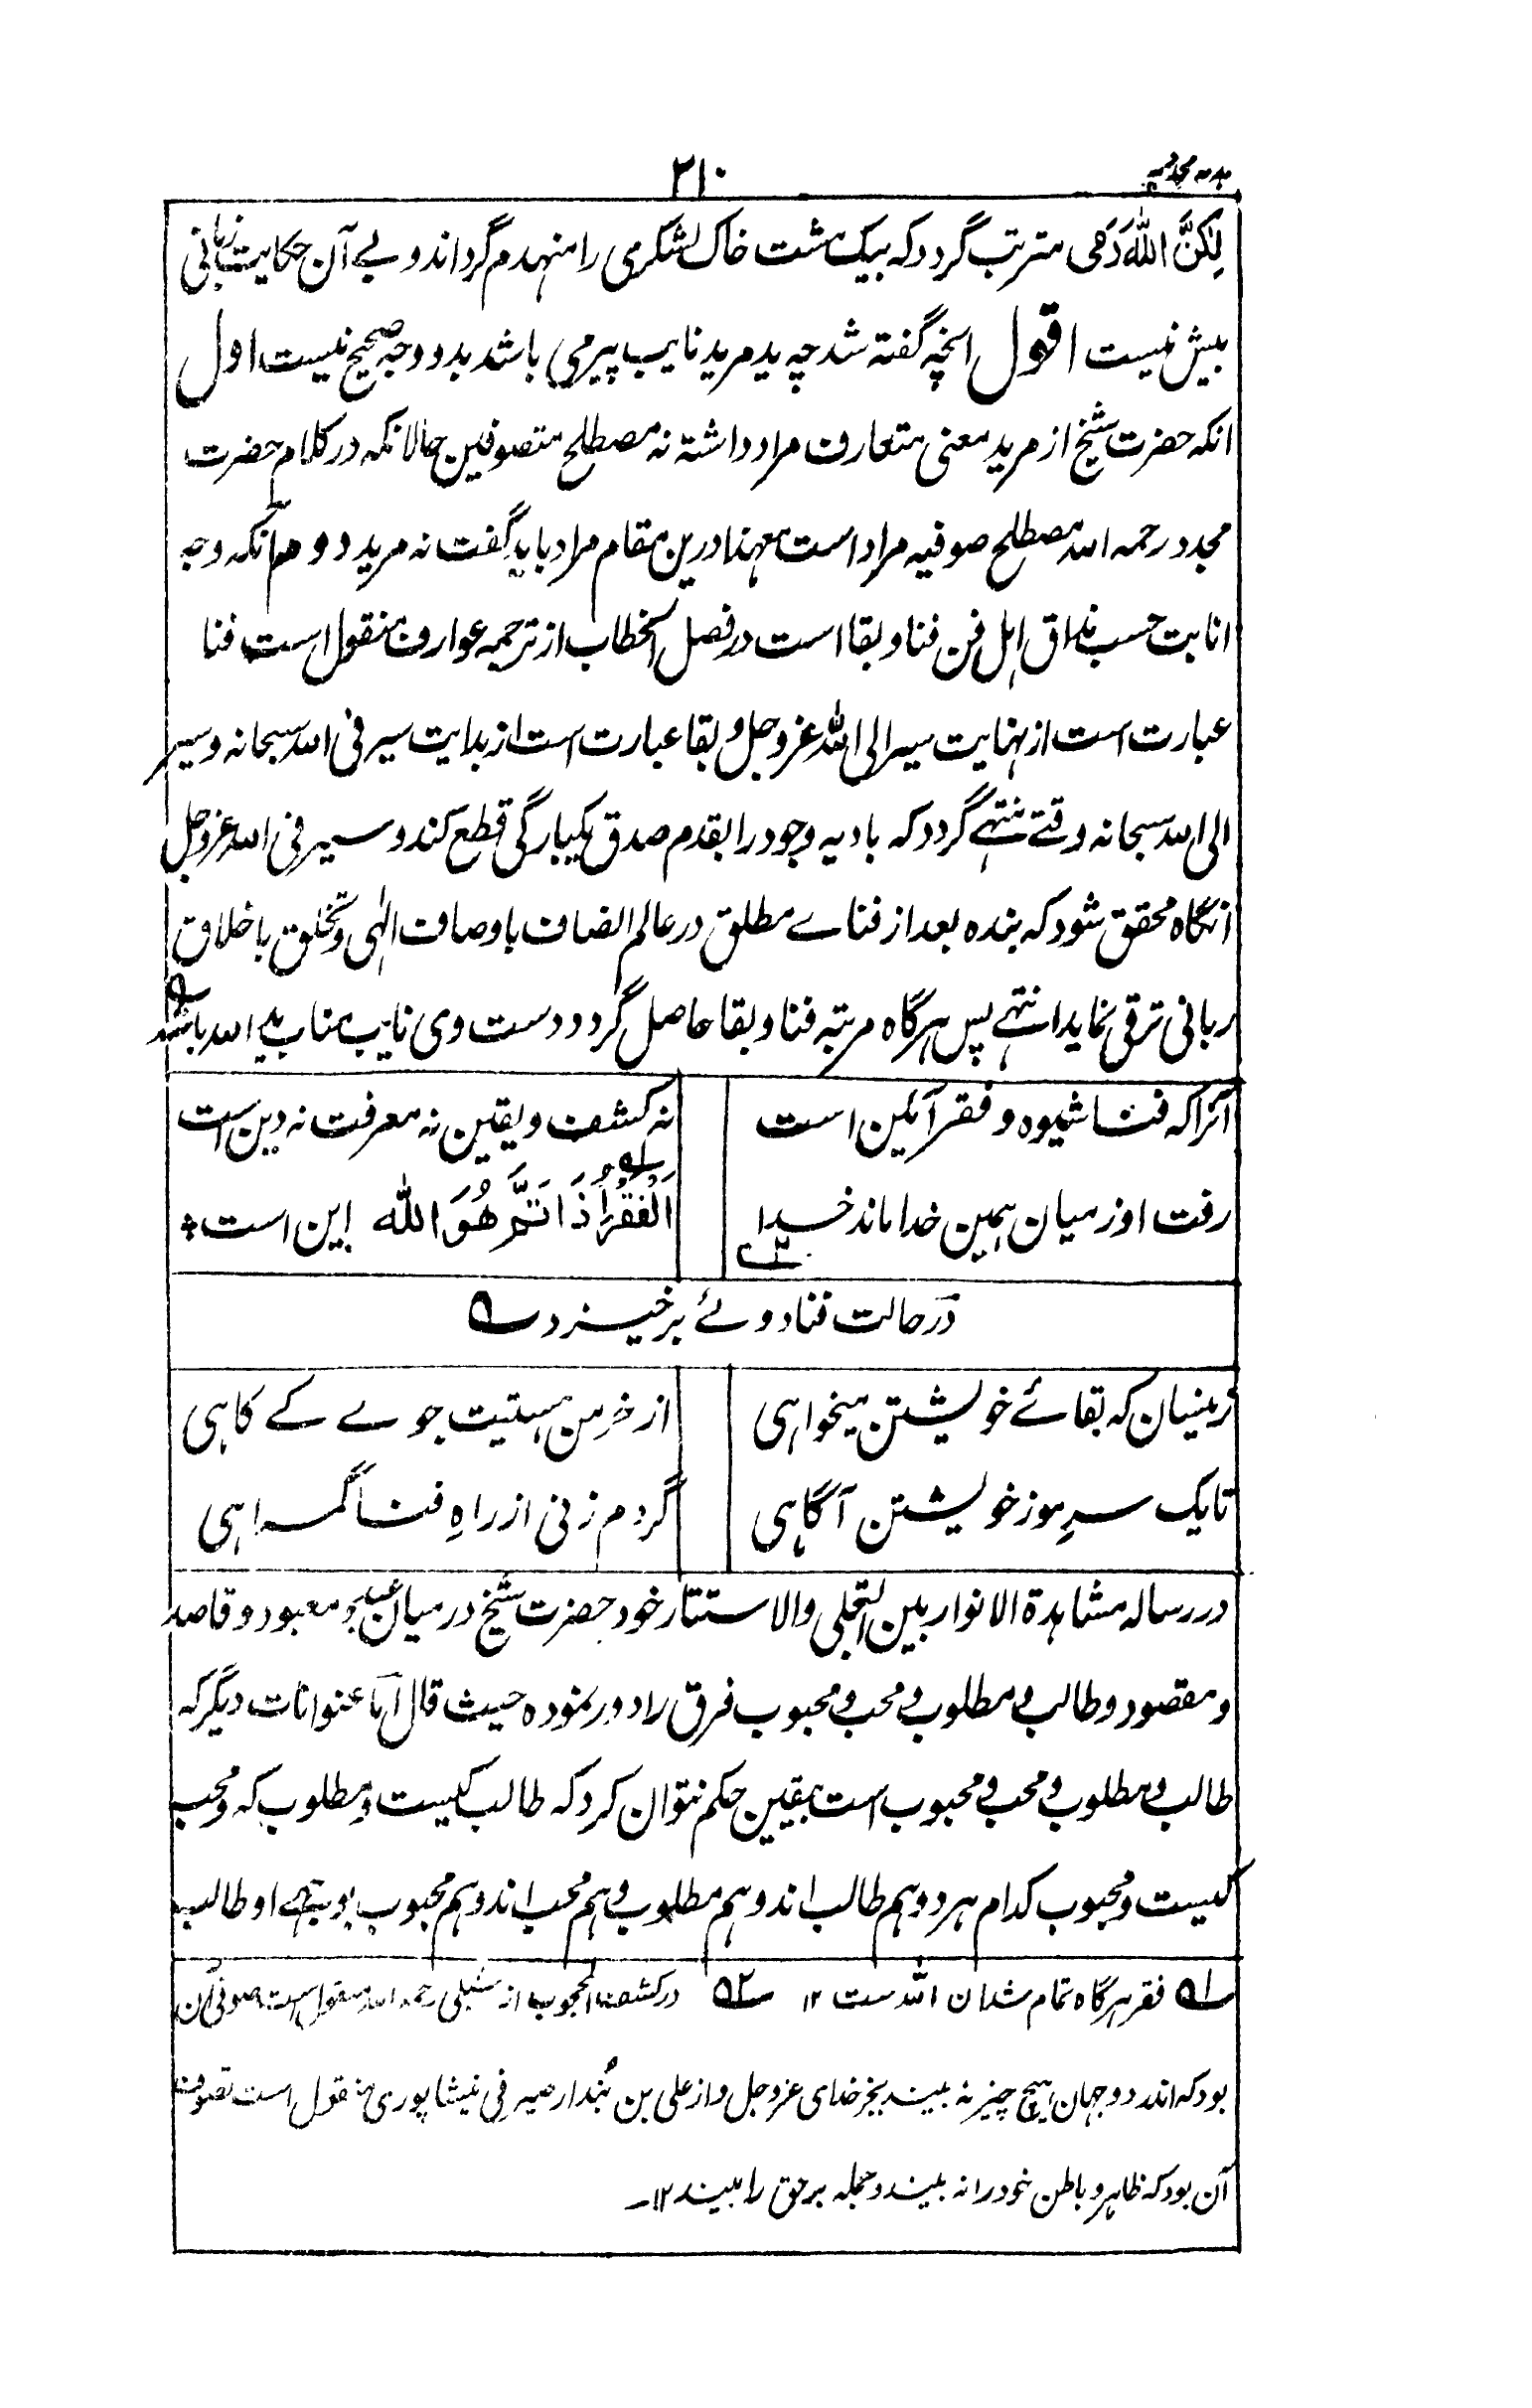 ۲۱۰
هدیه مجددیه
لٰکِنَّ اللّٰهَ رَمٰی مترتب گردد که بیک مشت خاک لشکری را منهدم گرداند و بے آن حکایت زبانی
بیش نیست اقول انچه گفته شد چه ید مرید نایب پیر می باشد بدو وجه صحیح نیست اول
انکه حضرت شیخ از مرید معنی متعارف مراد داشته نه مصطلح متصوفین حالانکه در کلام حضرت
مجدد رحمه الله مصطلح صوفیه مراد است معهذا درین مقام مراد باید گفت نه مرید دوم انکه وجه
انابت حسب مذاق اهل فن فنا و بقا است در فصل الخطاب از ترجمه عوارف منقول است فنا
عبارت است از نهایت سیر الی الله عز و جل و بقا عبارت است از بدایت سیر فی الله سبحانه و سیر
الی الله سبحانه وقتے منتهے گردد که بادیه وجود را بقدم صدق یکبارگی قطع کند و سیر فی الله عز و جل
آنگاه محقق شود که بنده بعد از فناے مطلق در عالم اتصاف باوصاف الٰهی و تخلق باخلاق
ربانی ترقی نماید انتهے پس هرگاه مرتبه فنا و بقا حاصل گردد دست وی نایب مناب ید الله باشد
آنرا که فنا شیوه و فقر آئین است نه کشف و یقین نه معرفت نه دین است
رفت او ز میان همین خدا ماند خدا اَلْفَقْرُ اِذَا تَمَّ هُوَ الله این است
در حالت فنا دوئے برخیزد
زینسان که بقائے خویشتن میخواهی از خرمن هستیت جوے کے کاهی
تا یک سرِ مو ز خویشتن آگاهی گر دم زنی از راهِ فنا گمراهی
در رساله مشاهدة الانوار بین التجلی والاستتار خود حضرت شیخ درمیان عبد و معبود و قاصد
و مقصود و طالب و مطلوب و محب و محبوب فرق را دور نموده حیث قال اما عنوانات دیگر که
طالب و مطلوب و محب و محبوب است بیقین حکم نتوان کرد که طالب کیست و مطلوب که و محب
کیست و محبوب کدام هر دو هم طالب اند و هم مطلوب و هم محب اند و هم محبوب بوجهے او طالب
۱ فقر هرگاه تمام شد آن الله ست ۱۲ ۲ در کشف المحجوب از شبلی رحمه الله منقول است صوفی آن
بود که اندر دو جهان هیچ چیز نه بیند بجز خدای عز و جل و از علی بن بُندار صیرفی نیشاپوری منقول است تصوف
آن بود که ظاهر و باطن خود را نه بیند و جمله بر حق را بیند ۱۲